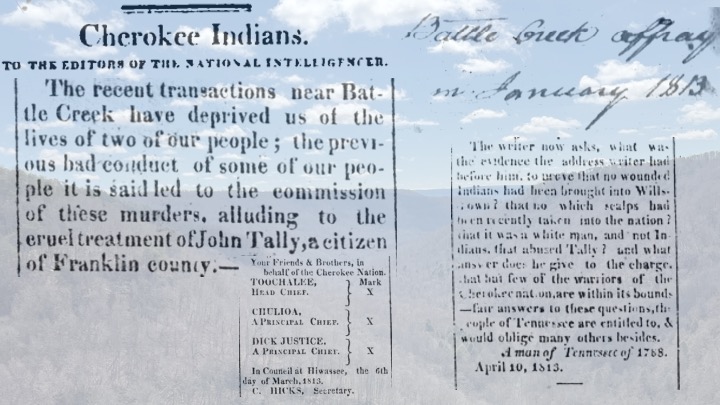 Cherokee Indians.
TO THE EDITORS OF THE NATIONAL INTELLIGENCER.
The recent transactions near Bat-
tle Creek have deprived us of the
lives of two of our people; the previ-
ous bad conduct of some of our peo-
ple it is said led to the commission
of these murders, alluding to the
cruel treatment of John Tally, a citizen
of Franklin county.—
Your Friends & Brothers, in
behalf of the Cherokee Nation.
TOOCHALEE, } Mark
HEAD CHIEF. } X
CHULIOA, }
A PRINCIPAL CHIEF. } X
DICK JUSTICE. }
A PRINCIPAL CHIEF. } X
In Council at Hiwassee, the 6th
day of March, 1813.
C. HICKS, Secretary.
Battle Creek affray
in January 1813
The writer now asks, what was
the evidence the address writer had
before him, to prove that no wounded
Indians had been brought into Wills-
town? that no which scalps had
been recently taken into the nation?
that it was a white man, and not In-
dians, that abused Tally? and what
answer does he give to the charge,
that but few of the warriors of the
Cherokee nation, are within its bounds
—fair answers to these questions, the
people of Tennessee are entitled to, &
would oblige many others besides.
A man of Tennessee of 1768.
April 10, 1813.